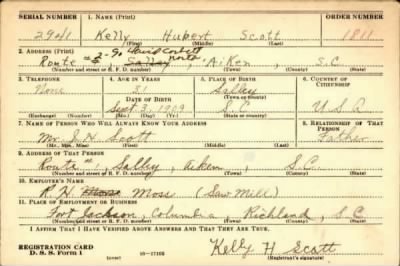 SERIAL NUMBER 1. NAME (Print) ORDER NUMBER
2941 Kelly Hubert Scott 1811
(First) (Middle) (Last)
2. ADDRESS (Print) 2-90 David Corbett
Route Salley note, Aiken, S.C.
(Number and street or R. F. D. number) (Town) (County) (State)
3. TELEPHONE 4. AGE IN YEARS 5. PLACE OF BIRTH 6. COUNTRY OF CITIZENSHIP
None 31 Salley
DATE OF BIRTH (Town or county)
Sept. 3, 1909 S.C. U S A
(Exchange) (Number) (Mo.) (Day) (Yr.) (State or country)
7. NAME OF PERSON WHO WILL ALWAYS KNOW YOUR ADDRESS 8. RELATIONSHIP OF THAT PERSON
Mr. J. H. Scott Father
(Mr., Mrs., Miss) (First) (Middle) (Last)
9. ADDRESS OF THAT PERSON
Route #1, Sally, Aiken S.C.
(Number and street or R. F. D. number) (Town) (County) (State)
10. EMPLOYER'S NAME
R. H. Moss (Saw Mill)
11. PLACE OF EMPLOYMENT OR BUSINESS
Fort Jackson, Columbia Richland, S.C
(Number and street or R. F. D. number) (Town) (County) (State)
I AFFIRM THAT I HAVE VERIFIED ABOVE ANSWERS AND THAT THEY ARE TRUE.
REGISTRATION CARD
D. S. S. Form 1 (over) Kelly H Scott
(Registrant's signature)